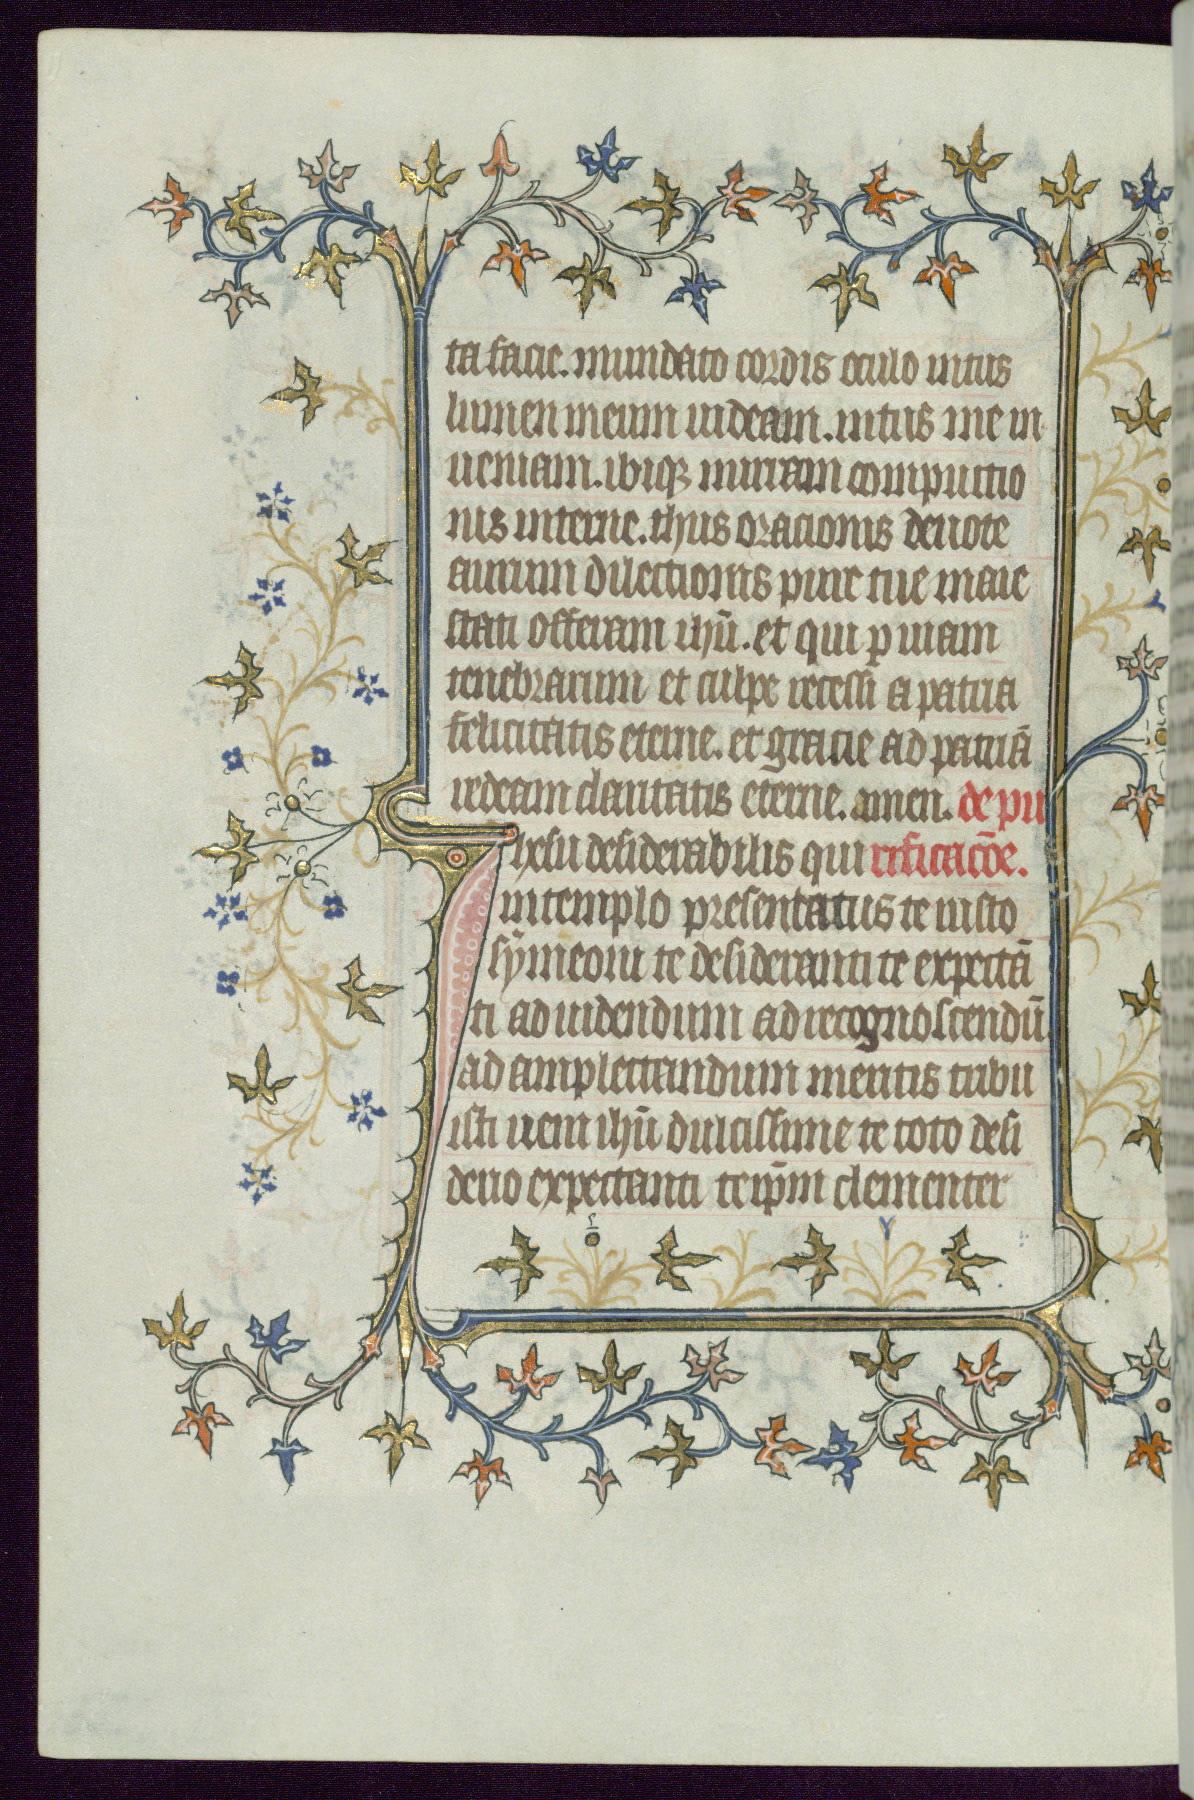 ta facie. mundato cordis oculo intus
lumen meum uideam. intus me in
ueniam. ibiqꝫ mirram compuctio
nis interne. thus oracionis deuote
aurum dilectionis pure tue maie
stati offeram ihū. et qui ꝑ uiam
tenebrarum et culpe recessi a patria
felicitatis eterne. et gracie ad patriā
redeam claritatis eterne. amen. de pu
Ihesu desiderabilis qui rificacōe.
in templo presentatus te iusto
symeoni te desideranti te expectā
ti ad uidendum ad recognoscendū
ad amplectandum mentis tribu
isti ueni ihū dulcissime te toto desi
derio expectanti teip̄m clementer